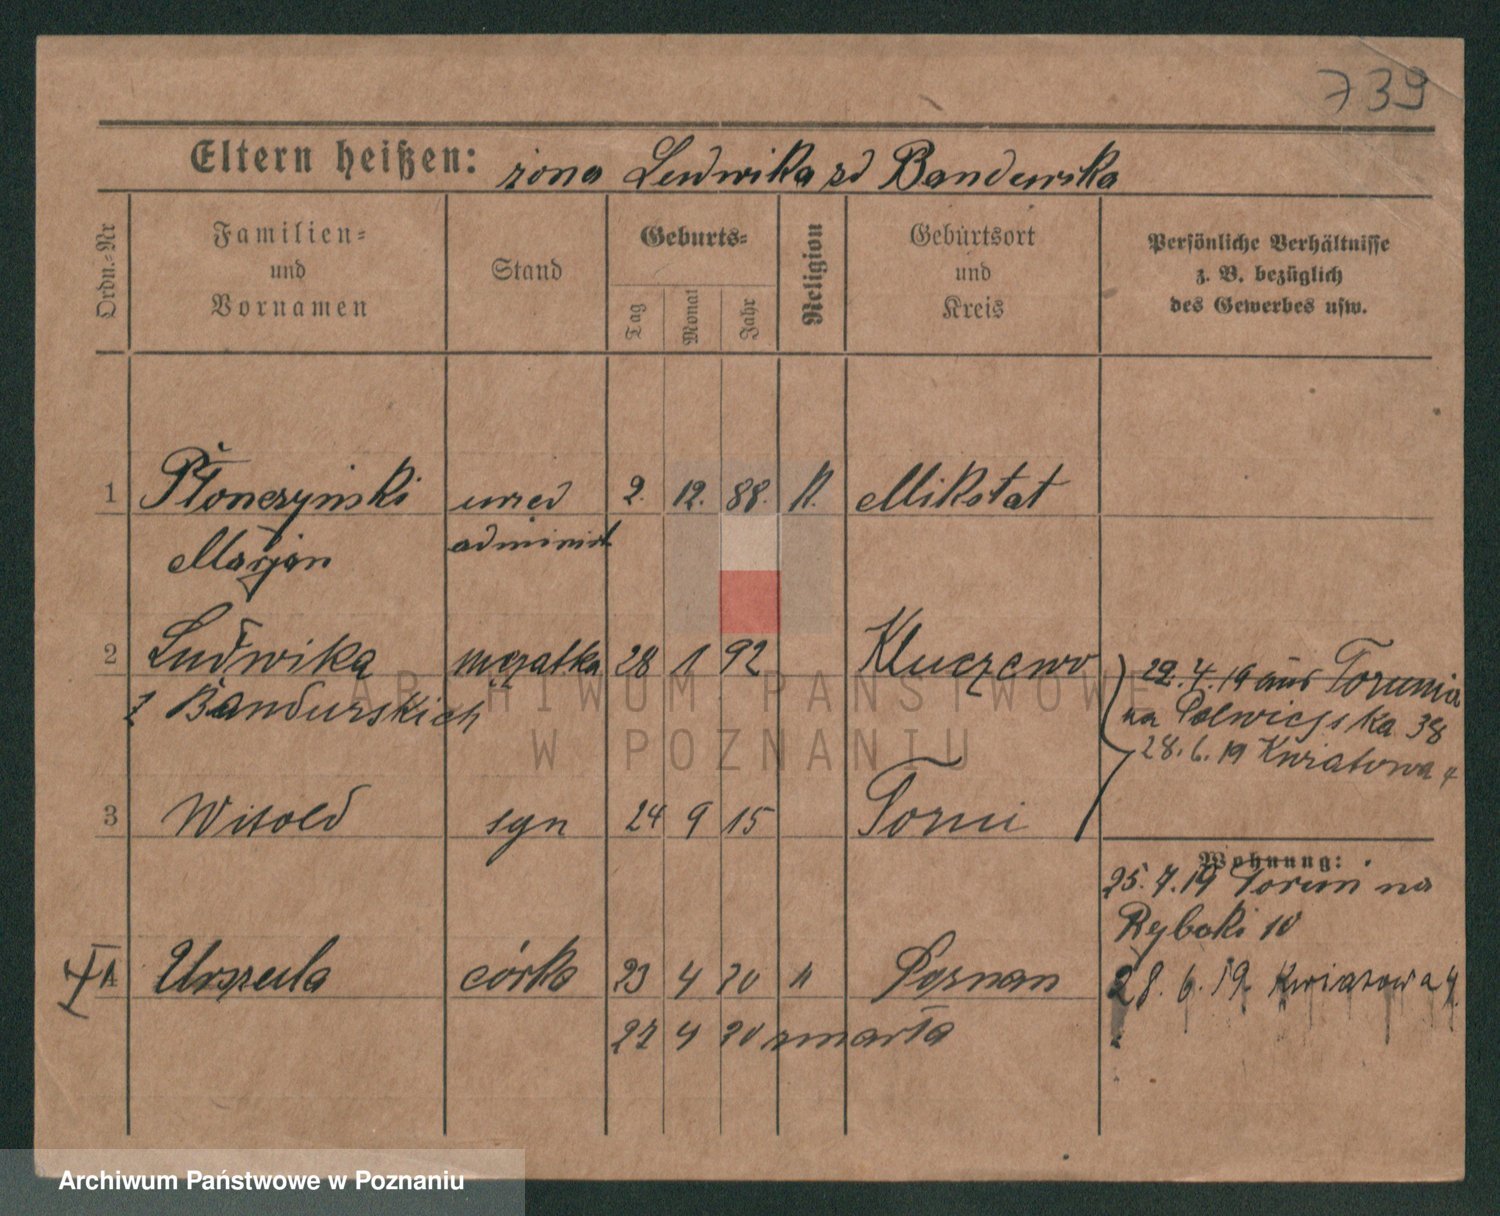 739
Eltern heißen: żona Ludwika zd Bandurska
Ordn.-Nr
Familien-
und
Vornamen
Stand
Geburts-
Tag
Monat
Jahr
Religion
Geburtsort
und
Kreis
Persönliche Verhältnisse
z. B. bezüglich
des Gewerbes usw.
1 Płonczyński urzed 2. 12. 88. K. Mikstat
Marjan administ
2 Ludwika mężatka 28 1 92 Kluczewo
z Bandurskich
22.4.19 aus Torunia
na Półwiejska 38
28.6.19 Kwiatowa 4
3 Witold syn 24 9 15 Toruń
Wohnung:
25.7.19 Toruń na
Rybaki 10
4 Urszula córka 23 4 20 " Poznań
28.6.19 Kwiatowa 4.
27 4 20 zmarła
ARCHIWUM PAŃSTWOWE
W POZNANIU
Archiwum Państwowe w Poznaniu